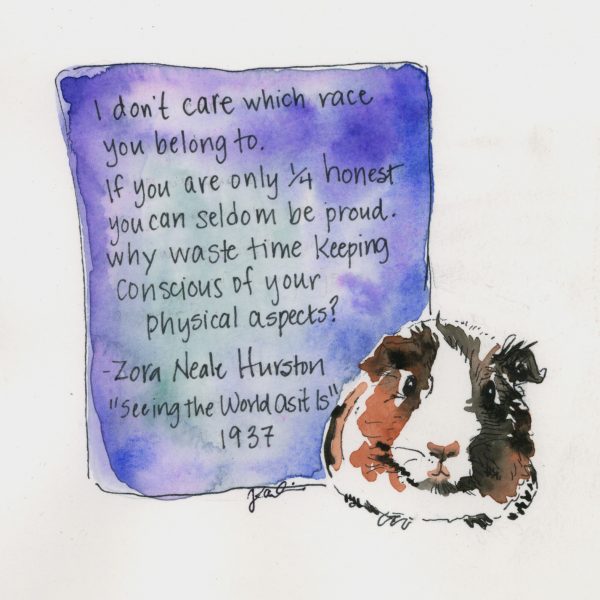 I don't care which race
you belong to.
If you are only 1/4 honest
you can seldom be proud.
why waste time keeping
conscious of your
physical aspects?
-Zora Neale Hurston
"Seeing the World As it Is"
1937